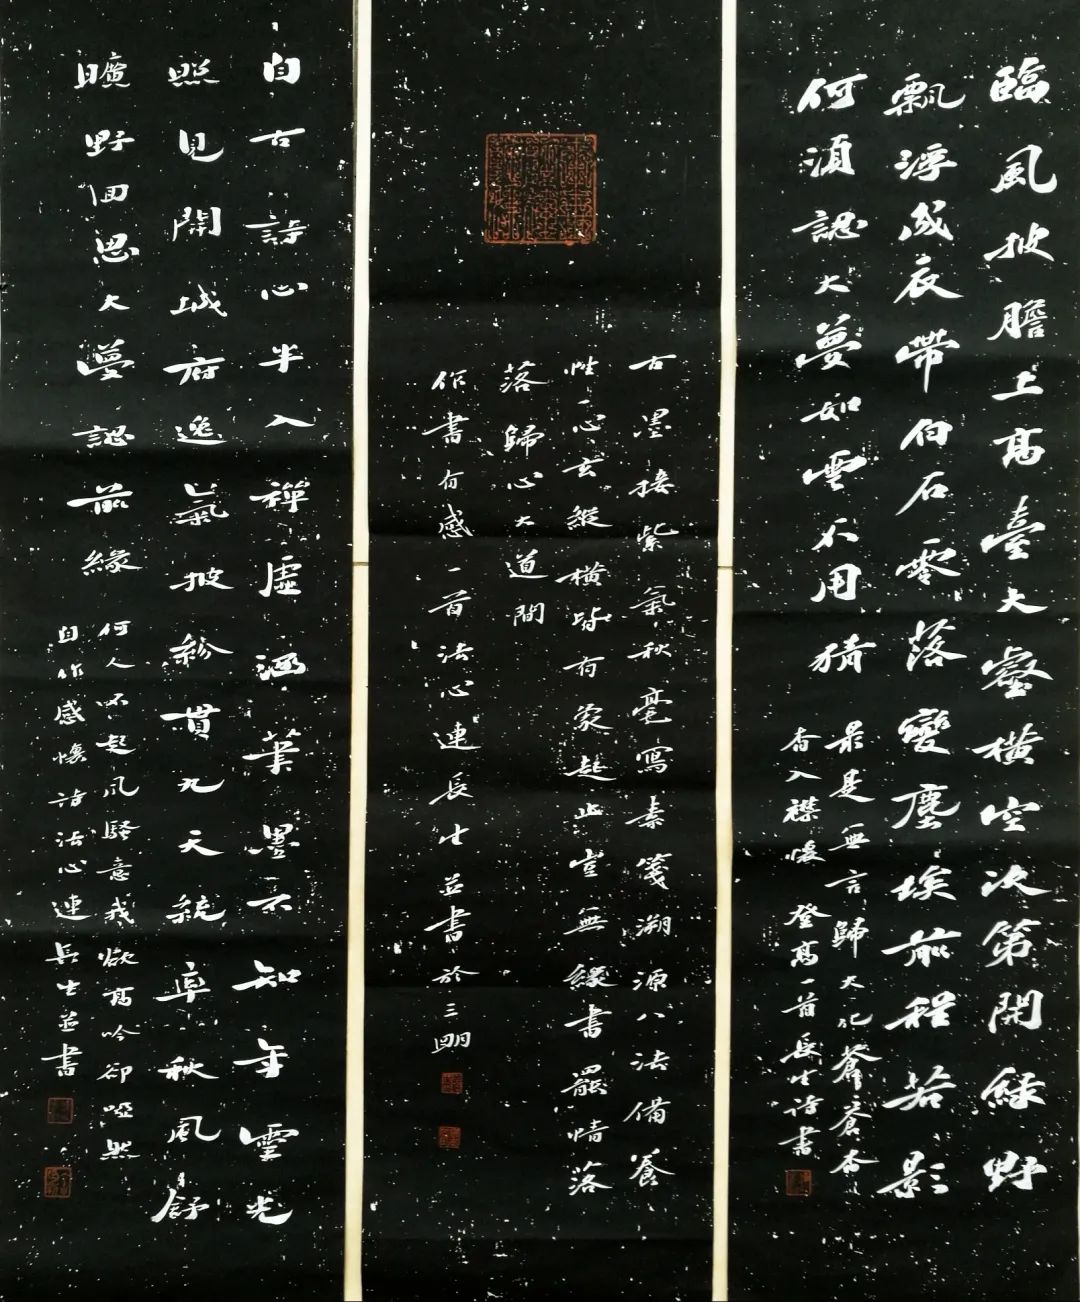 臨風披膽上高臺大壑橫空次第開綠野
飄浮成衣帶伯石零落變塵埃前程若影
何須認大夢如雲不用猜
最是無言歸大化蒼蒼杳
杳入襟懷 登高一首長生詩書
古墨接紫氣秋毫寫素箋溯源八法備養
性一心玄縱橫皆有象起止豈無緣書罷情落
落歸心大道間
作書有感一首法心連長生並書於三明
自古詩心半入禪虛涵筆墨不知年雲光
照見開城府逸氣披紛貫九天統率秋風舒
曠野回思大夢認前緣
何人不起風騷意我欲高吟卻啞然
自作感懷詩法心連長生並書